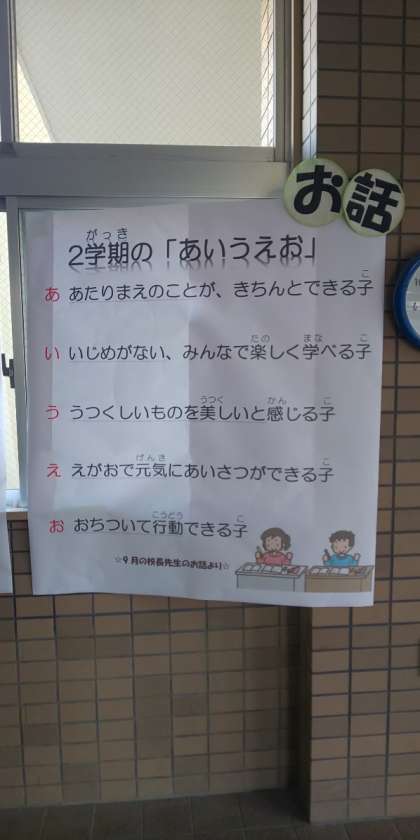 お話
がっき
2学期の「あいうえお」
あ あたりまえのことが、きちんとできる子
こ
い いじめがない、みんなで楽しく学べる子
たの まな こ
う うつくしいものを美しいと感じる子
うつく かん こ
え えがおで元気にあいさつができる子
げんき こ
お おちついて行動できる子
こうどう こ
☆9月の校長先生のお話より☆